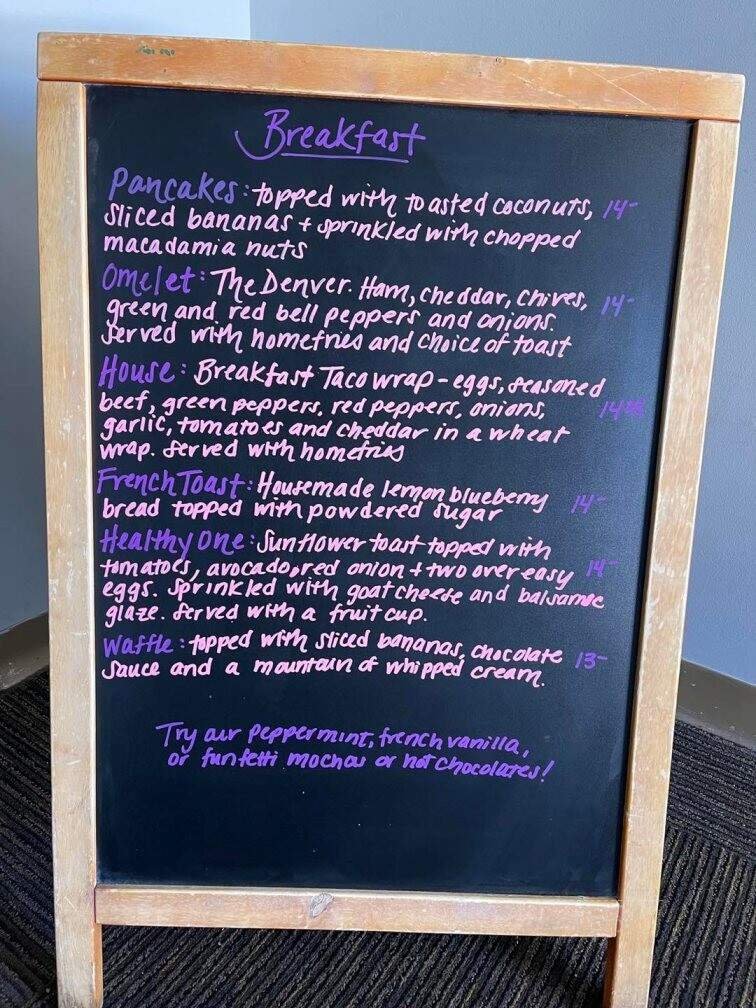 Breakfast
Pancakes: topped with toasted coconuts, 14-
sliced bananas + sprinkled with chopped
macadamia nuts
Omelet: The Denver. Ham, cheddar, chives, 14-
green and red bell peppers and onions.
Served with homefries and choice of toast
House: Breakfast Taco wrap - eggs, seasoned
beef, green peppers, red peppers, onions, 14
garlic, tomatoes and cheddar in a wheat
wrap. Served with homefries
French Toast: Housemade lemon blueberry 14-
bread topped with powdered sugar
Healthy One: Sunflower toast topped with
tomatoes, avocado, red onion + two over easy 14-
eggs. Sprinkled with goat cheese and balsamic
glaze. Served with a fruit cup.
Waffle: topped with sliced bananas, chocolate 13-
sauce and a mountain of whipped cream.
Try our peppermint, french vanilla,
or funfetti mochas or hot chocolates!